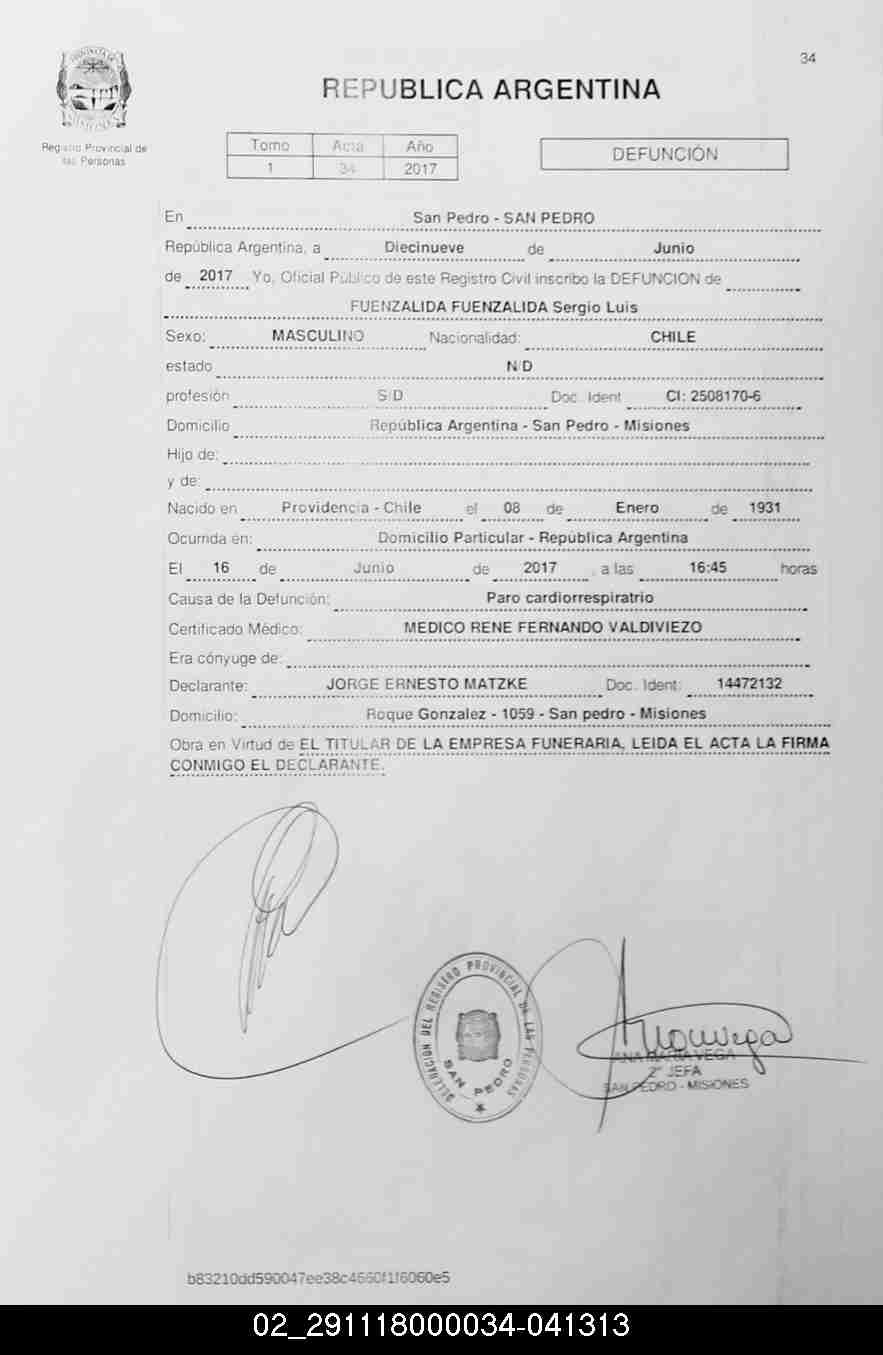 34
PROVINCIA DE
MISIONES
Registro Provincial de
las Personas
REPUBLICA ARGENTINA
Tomo Acta Año
1 34 2017
DEFUNCIÓN
En San Pedro - SAN PEDRO
República Argentina, a Diecinueve de Junio
de 2017 Yo, Oficial Público de este Registro Civil inscribo la DEFUNCION de
FUENZALIDA FUENZALIDA Sergio Luis
Sexo: MASCULINO Nacionalidad: CHILE
estado N/D
profesión S/D Doc. Ident CI: 2508170-6
Domicilio República Argentina - San Pedro - Misiones
Hijo de:
y de:
Nacido en Providencia - Chile el 08 de Enero de 1931
Ocurrida en: Domicilio Particular - República Argentina
El 16 de Junio de 2017 , a las 16:45 horas
Causa de la Defunción: Paro cardiorrespiratrio
Certificado Médico: MEDICO RENE FERNANDO VALDIVIEZO
Era cónyuge de:
Declarante: JORGE ERNESTO MATZKE Doc. Ident: 14472132
Domicilio: Roque Gonzalez - 1059 - San pedro - Misiones
Obra en Virtud de EL TITULAR DE LA EMPRESA FUNERARIA, LEIDA EL ACTA LA FIRMA
CONMIGO EL DECLARANTE.
DELEGACION DEL REGISTRO PROVINCIAL DE LAS PERSONAS
SAN PEDRO
ANA MARIA VEGA
2° JEFA
SAN PEDRO - MISIONES
b83210dd590047ee38c4660f1f6060e5
02_291118000034-041313